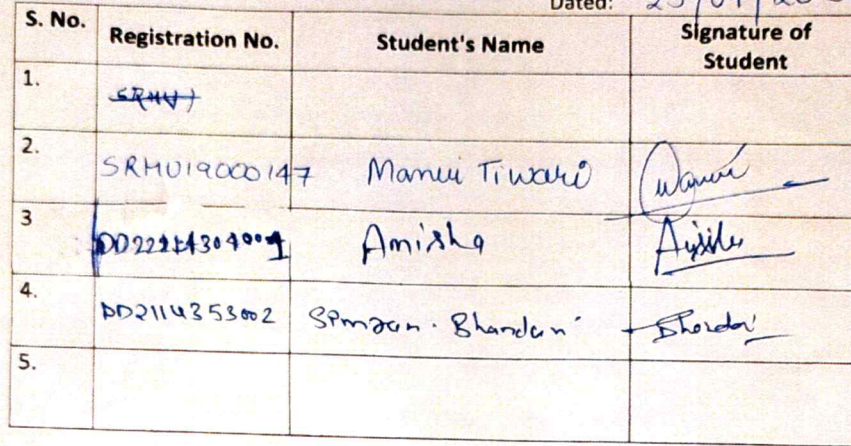 Dated: 25/01/20
S. No. Registration No. Student's Name Signature of Student
1.
2. SRMU19000147 Manvi Tiwari Manvi
3 Amisha
4. DD2114353002 Simran. Bhandari Bhandari
5.